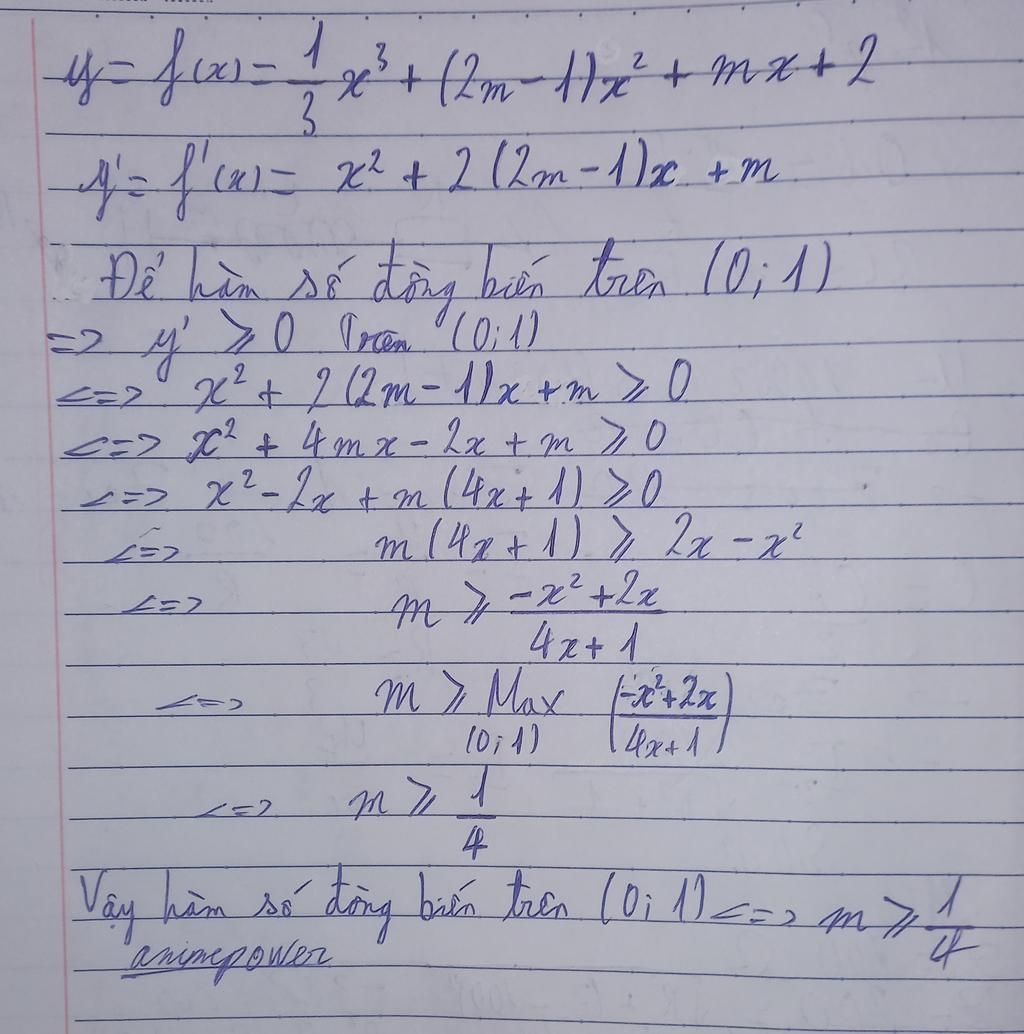 y = f(x) = 1/3 x³ + (2m - 1)x² + mx + 2
y' = f'(x) = x² + 2(2m - 1)x + m
Để hàm số đồng biến trên (0; 1)
=> y' ⩾ 0 Trên (0;1)
<=> x² + 2(2m - 1)x + m ⩾ 0
<=> x² + 4mx - 2x + m ⩾ 0
<=> x² - 2x + m(4x + 1) ⩾ 0
<=> m(4x + 1) ⩾ 2x - x²
<=> m ⩾ (-x² + 2x)/(4x + 1)
<=> m ⩾ Max (0;1) ((-x² + 2x)/(4x + 1))
<=> m ⩾ 1/4
Vậy hàm số đồng biến trên (0; 1) <=> m ⩾ 1/4
animepower